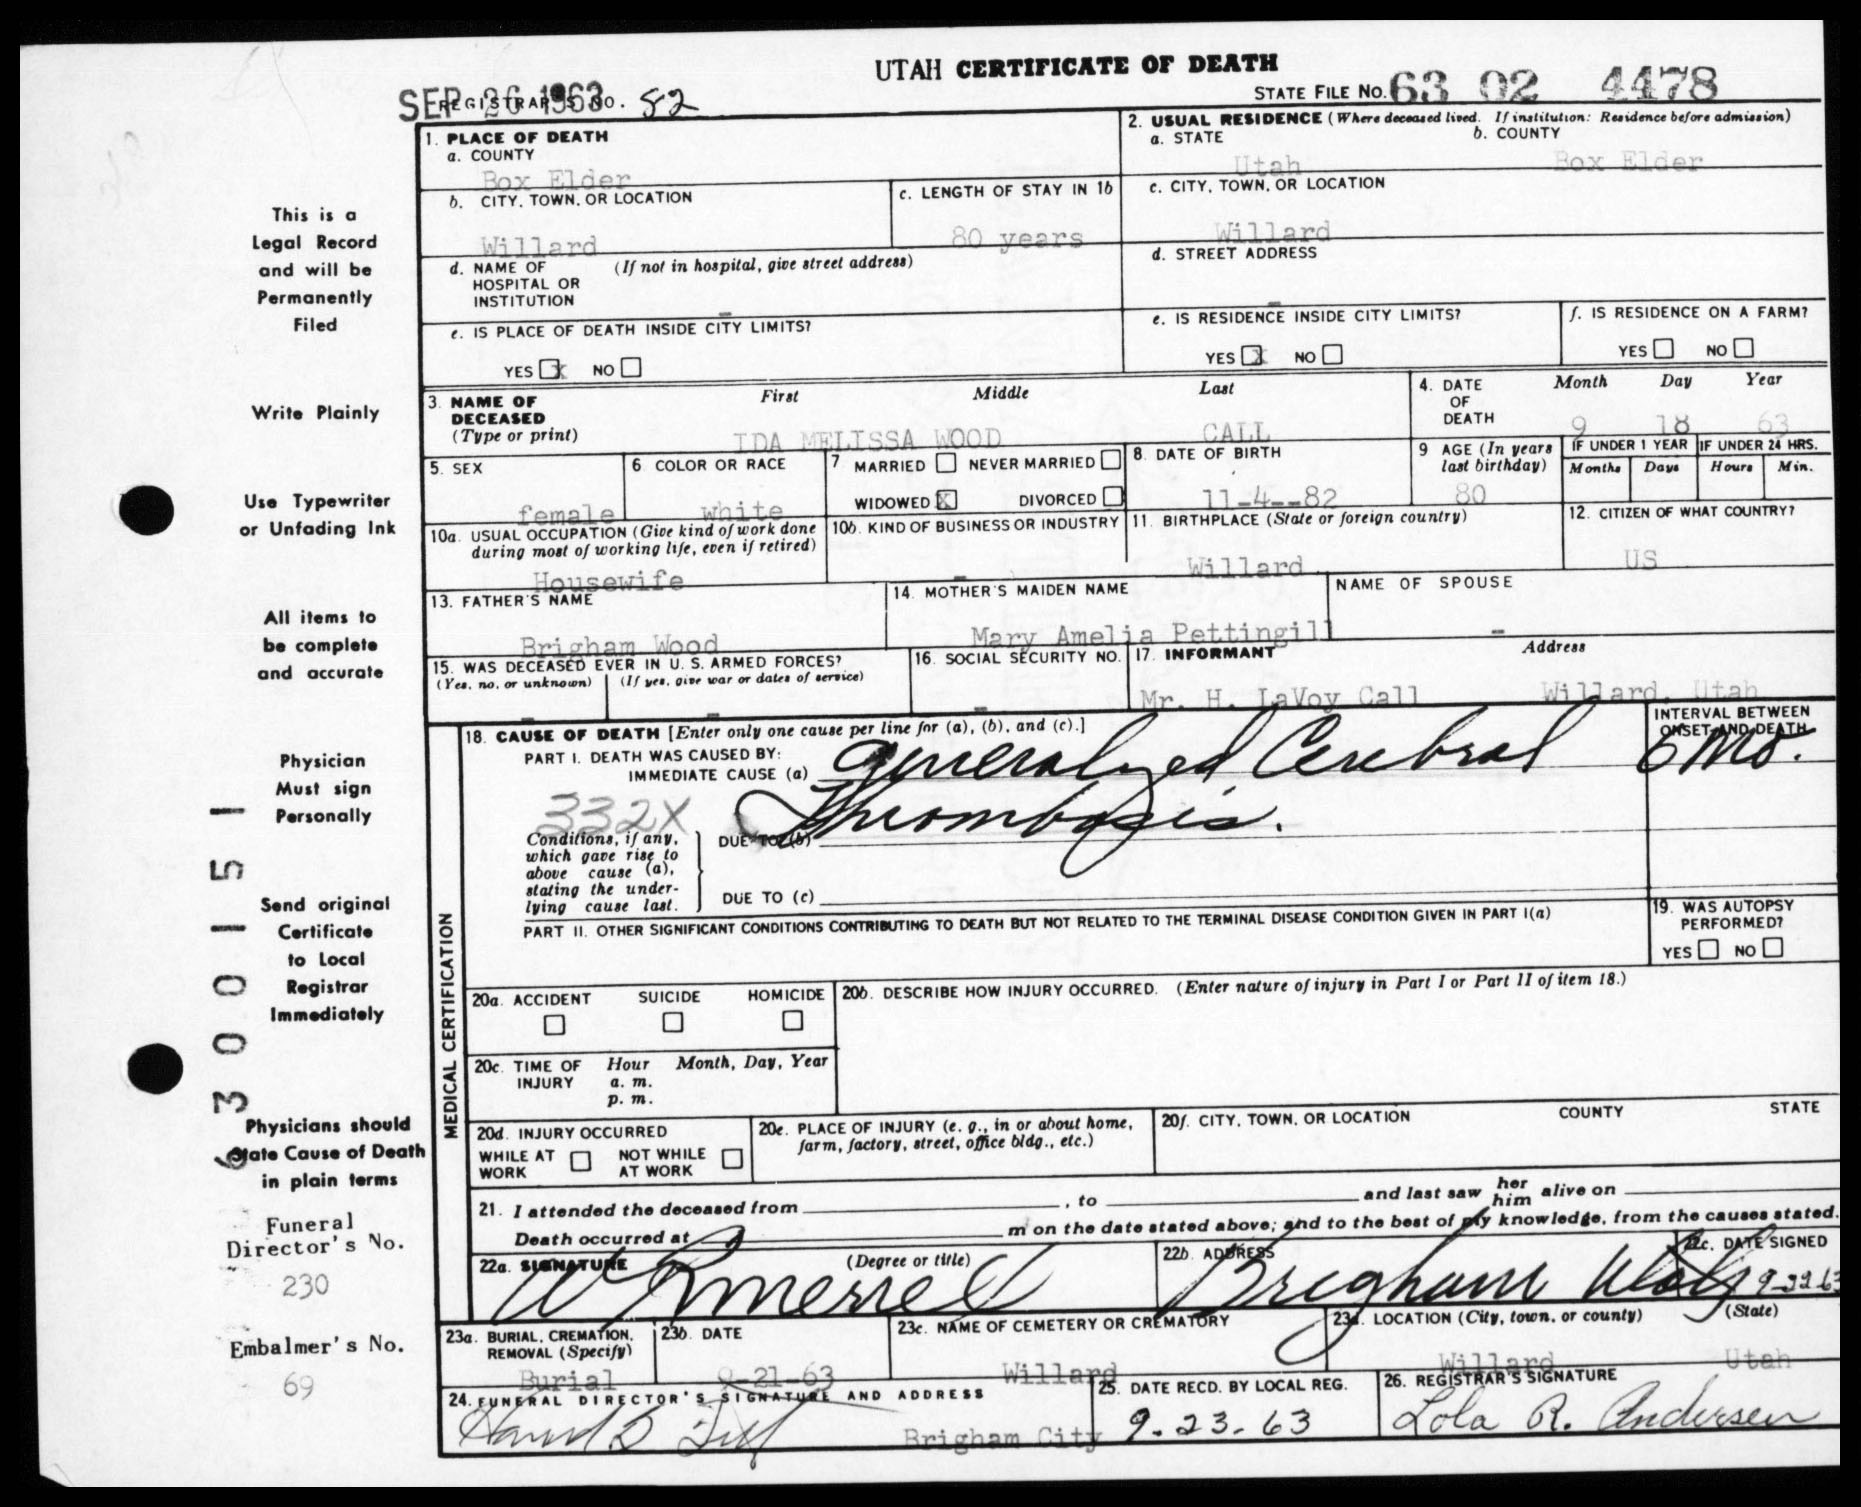 UTAH CERTIFICATE OF DEATH
SEP 26 1963
REGISTRAR'S NO. 82
STATE FILE NO. 63 02 4478
1. PLACE OF DEATH
a. COUNTY
Box Elder
2. USUAL RESIDENCE (Where deceased lived. If institution: Residence before admission)
a. STATE b. COUNTY
Utah Box Elder
b. CITY, TOWN, OR LOCATION
Willard
c. LENGTH OF STAY IN 1b
80 years
c. CITY, TOWN, OR LOCATION
Willard
d. NAME OF (If not in hospital, give street address)
HOSPITAL OR
INSTITUTION
-
d. STREET ADDRESS
-
e. IS PLACE OF DEATH INSIDE CITY LIMITS?
YES x NO
e. IS RESIDENCE INSIDE CITY LIMITS?
YES x NO
f. IS RESIDENCE ON A FARM?
YES NO
3. NAME OF DECEASED (Type or print)
First Middle Last
IDA MELISSA WOOD CALL
4. DATE OF DEATH
Month Day Year
9 18 63
5. SEX
female
6 COLOR OR RACE
white
7 MARRIED NEVER MARRIED
WIDOWED X DIVORCED
8. DATE OF BIRTH
11-4--82
9 AGE (In years last birthday)
80
IF UNDER 1 YEAR
Months Days
IF UNDER 24 HRS.
Hours Min.
10a. USUAL OCCUPATION (Give kind of work done
during most of working life, even if retired)
Housewife
10b. KIND OF BUSINESS OR INDUSTRY
-
11. BIRTHPLACE (State or foreign country)
Willard
12. CITIZEN OF WHAT COUNTRY?
US
13. FATHER'S NAME
Brigham Wood
14. MOTHER'S MAIDEN NAME
Mary Amelia Pettingill
NAME OF SPOUSE
-
15. WAS DECEASED EVER IN U. S. ARMED FORCES?
(Yes, no, or unknown) (If yes, give war or dates of service)
- -
16. SOCIAL SECURITY NO.
-
17. INFORMANT Address
Mr. H. LaVoy Call Willard, Utah
MEDICAL CERTIFICATION
18. CAUSE OF DEATH [Enter only one cause per line for (a), (b), and (c).]
INTERVAL BETWEEN
ONSET AND DEATH
PART I. DEATH WAS CAUSED BY:
IMMEDIATE CAUSE (a) Generalized Cerebral 6 Mo.
332X Thrombosis.
Conditions, if any,
which gave rise to
above cause (a),
stating the under-
lying cause last.
DUE TO (b)
DUE TO (c)
PART II. OTHER SIGNIFICANT CONDITIONS CONTRIBUTING TO DEATH BUT NOT RELATED TO THE TERMINAL DISEASE CONDITION GIVEN IN PART I(a)
19. WAS AUTOPSY
PERFORMED?
YES NO
20a. ACCIDENT SUICIDE HOMICIDE
20b. DESCRIBE HOW INJURY OCCURRED. (Enter nature of injury in Part I or Part II of item 18.)
20c. TIME OF INJURY
Hour Month, Day, Year
a. m.
p. m.
20d. INJURY OCCURRED
WHILE AT WORK NOT WHILE AT WORK
20e. PLACE OF INJURY (e. g., in or about home,
farm, factory, street, office bldg., etc.)
20f. CITY, TOWN, OR LOCATION COUNTY STATE
21. I attended the deceased from , to and last saw her him alive on
Death occurred at m on the date stated above; and to the best of my knowledge, from the causes stated.
22a. SIGNATURE (Degree or title)
W R Merrell
22b. ADDRESS
Brigham Utah
22c. DATE SIGNED
9-22 63
23a. BURIAL, CREMATION,
REMOVAL (Specify)
Burial
23b. DATE
9-21-63
23c. NAME OF CEMETERY OR CREMATORY
Willard
23d. LOCATION (City, town, or county) (State)
Willard Utah
24. FUNERAL DIRECTOR'S SIGNATURE AND ADDRESS
Brigham City
25. DATE RECD. BY LOCAL REG.
9-23-63
26. REGISTRAR'S SIGNATURE
Lola R. Andersen
This is a
Legal Record
and will be
Permanently
Filed
Write Plainly
Use Typewriter
or Unfading Ink
All items to
be complete
and accurate
Physician
Must sign
Personally
Send original
Certificate
to Local
Registrar
Immediately
Physicians should
State Cause of Death
in plain terms
Funeral
Director's No.
230
Embalmer's No.
69
6 3 0 0 1 5 1